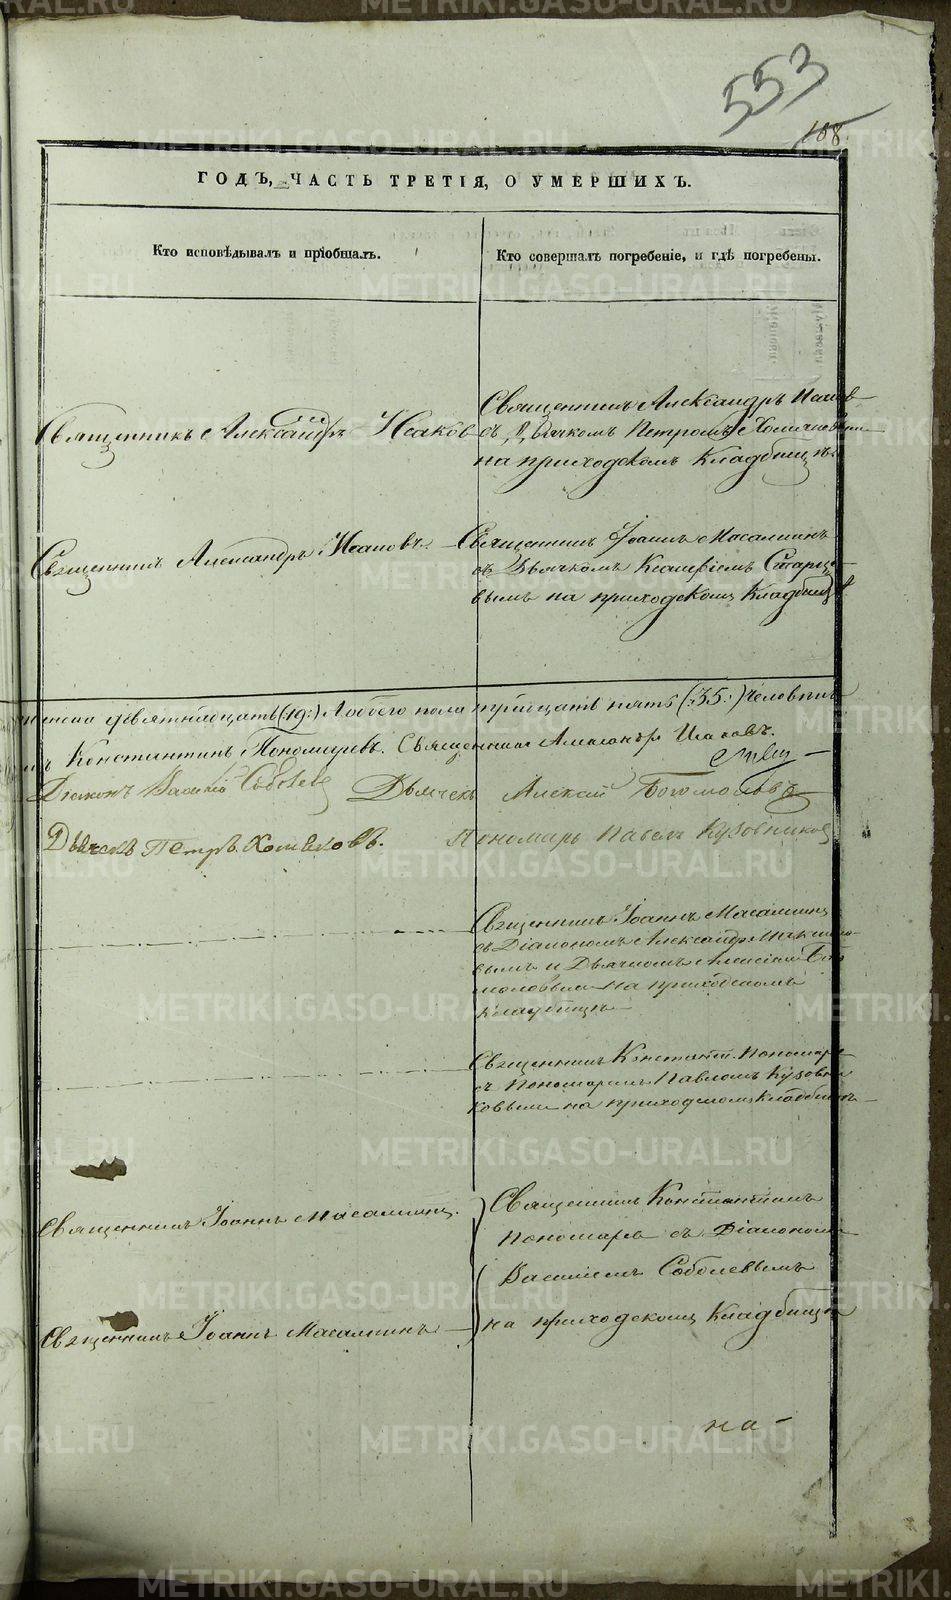 553
108
ГОДЪ, ЧАСТЬ ТРЕТІЯ, О УМЕРШИХЪ.
Кто исповѣдывалъ и пріобщалъ.
Кто совершалъ погребеніе, и гдѣ погребены.
Священникъ Александръ Исаков
Священникъ Александръ Исаков
съ Дьячкомъ Петромъ Хомяковым
на приходскомъ Кладбищѣ
Священникъ Александръ Исаковъ.
Священникъ Іоаннъ Масалкинъ
съ Дьячкомъ Старце-
вымъ на приходскомъ Кладбищѣ
девятнадцать (19.) Обоего пола тридцать пять (35.) человѣкъ
Константинъ Пономаревъ. Священникъ Александръ Исаковъ.
Діаконъ Василій Соболевъ Дьячекъ Алексій Богомоловъ
Дьячекъ Петръ Хомяковъ. Пономарь Павелъ Кузовников
Священникъ Іоаннъ Масалкинъ
съ Діакономъ Александромъ
вымъ и Дьячкомъ Алексіемъ Бого
моловымъ на приходскомъ
кладбищѣ
Священникъ Констант. Пономаре
съ Пономаремъ Павломъ Кузовни
ковымъ на приходскомъ кладбищѣ
Священникъ Іоаннъ Масалкинъ.
Священникъ Константинъ
Пономарев съ Діакономъ
Василіемъ Соболевымъ
Священникъ Іоаннъ Масалкинъ
на приходскомъ Кладбищѣ
на
METRIKI.GASO-URAL.RU